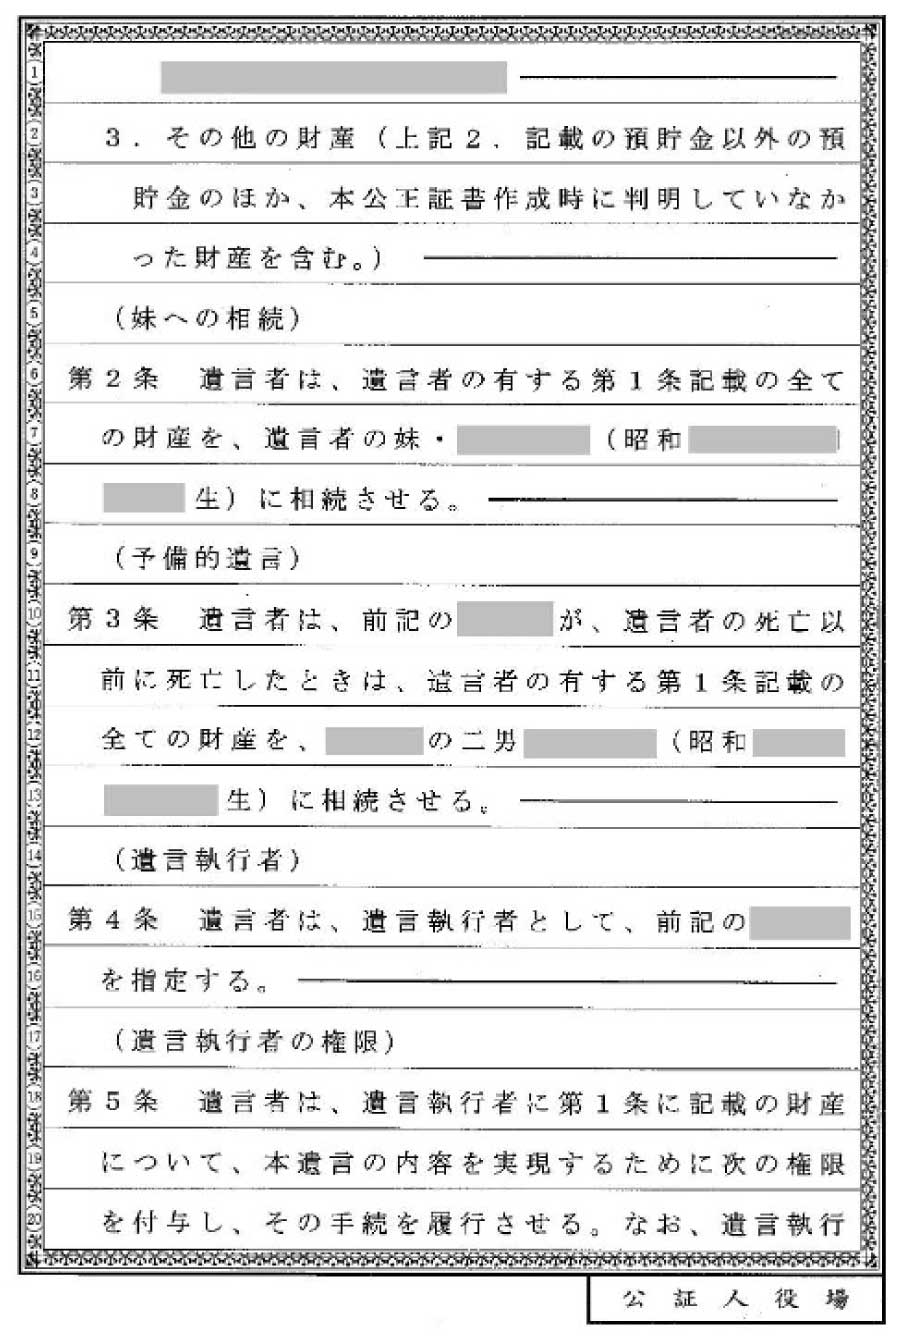 ① 
② 3．その他の財産（上記2．記載の預貯金以外の預
③ 貯金のほか、本公正証書作成時に判明していなか
④ った財産を含む。）
⑤ （妹への相続）
⑥ 第2条　遺言者は、遺言者の有する第1条記載の全て
⑦ の財産を、遺言者の妹・（昭和
⑧ 生）に相続させる。
⑨ （予備的遺言）
⑩ 第3条　遺言者は、前記のが、遺言者の死亡以
⑪ 前に死亡したときは、遺言者の有する第1条記載の
⑫ 全ての財産を、の二男（昭和
⑬ 生）に相続させる。
⑭ （遺言執行者）
⑮ 第4条　遺言者は、遺言執行者として、前記の
⑯ を指定する。
⑰ （遺言執行者の権限）
⑱ 第5条　遺言者は、遺言執行者に第1条に記載の財産
⑲ について、本遺言の内容を実現するために次の権限
⑳ を付与し、その手続を履行させる。なお、遺言執行
公証人役場